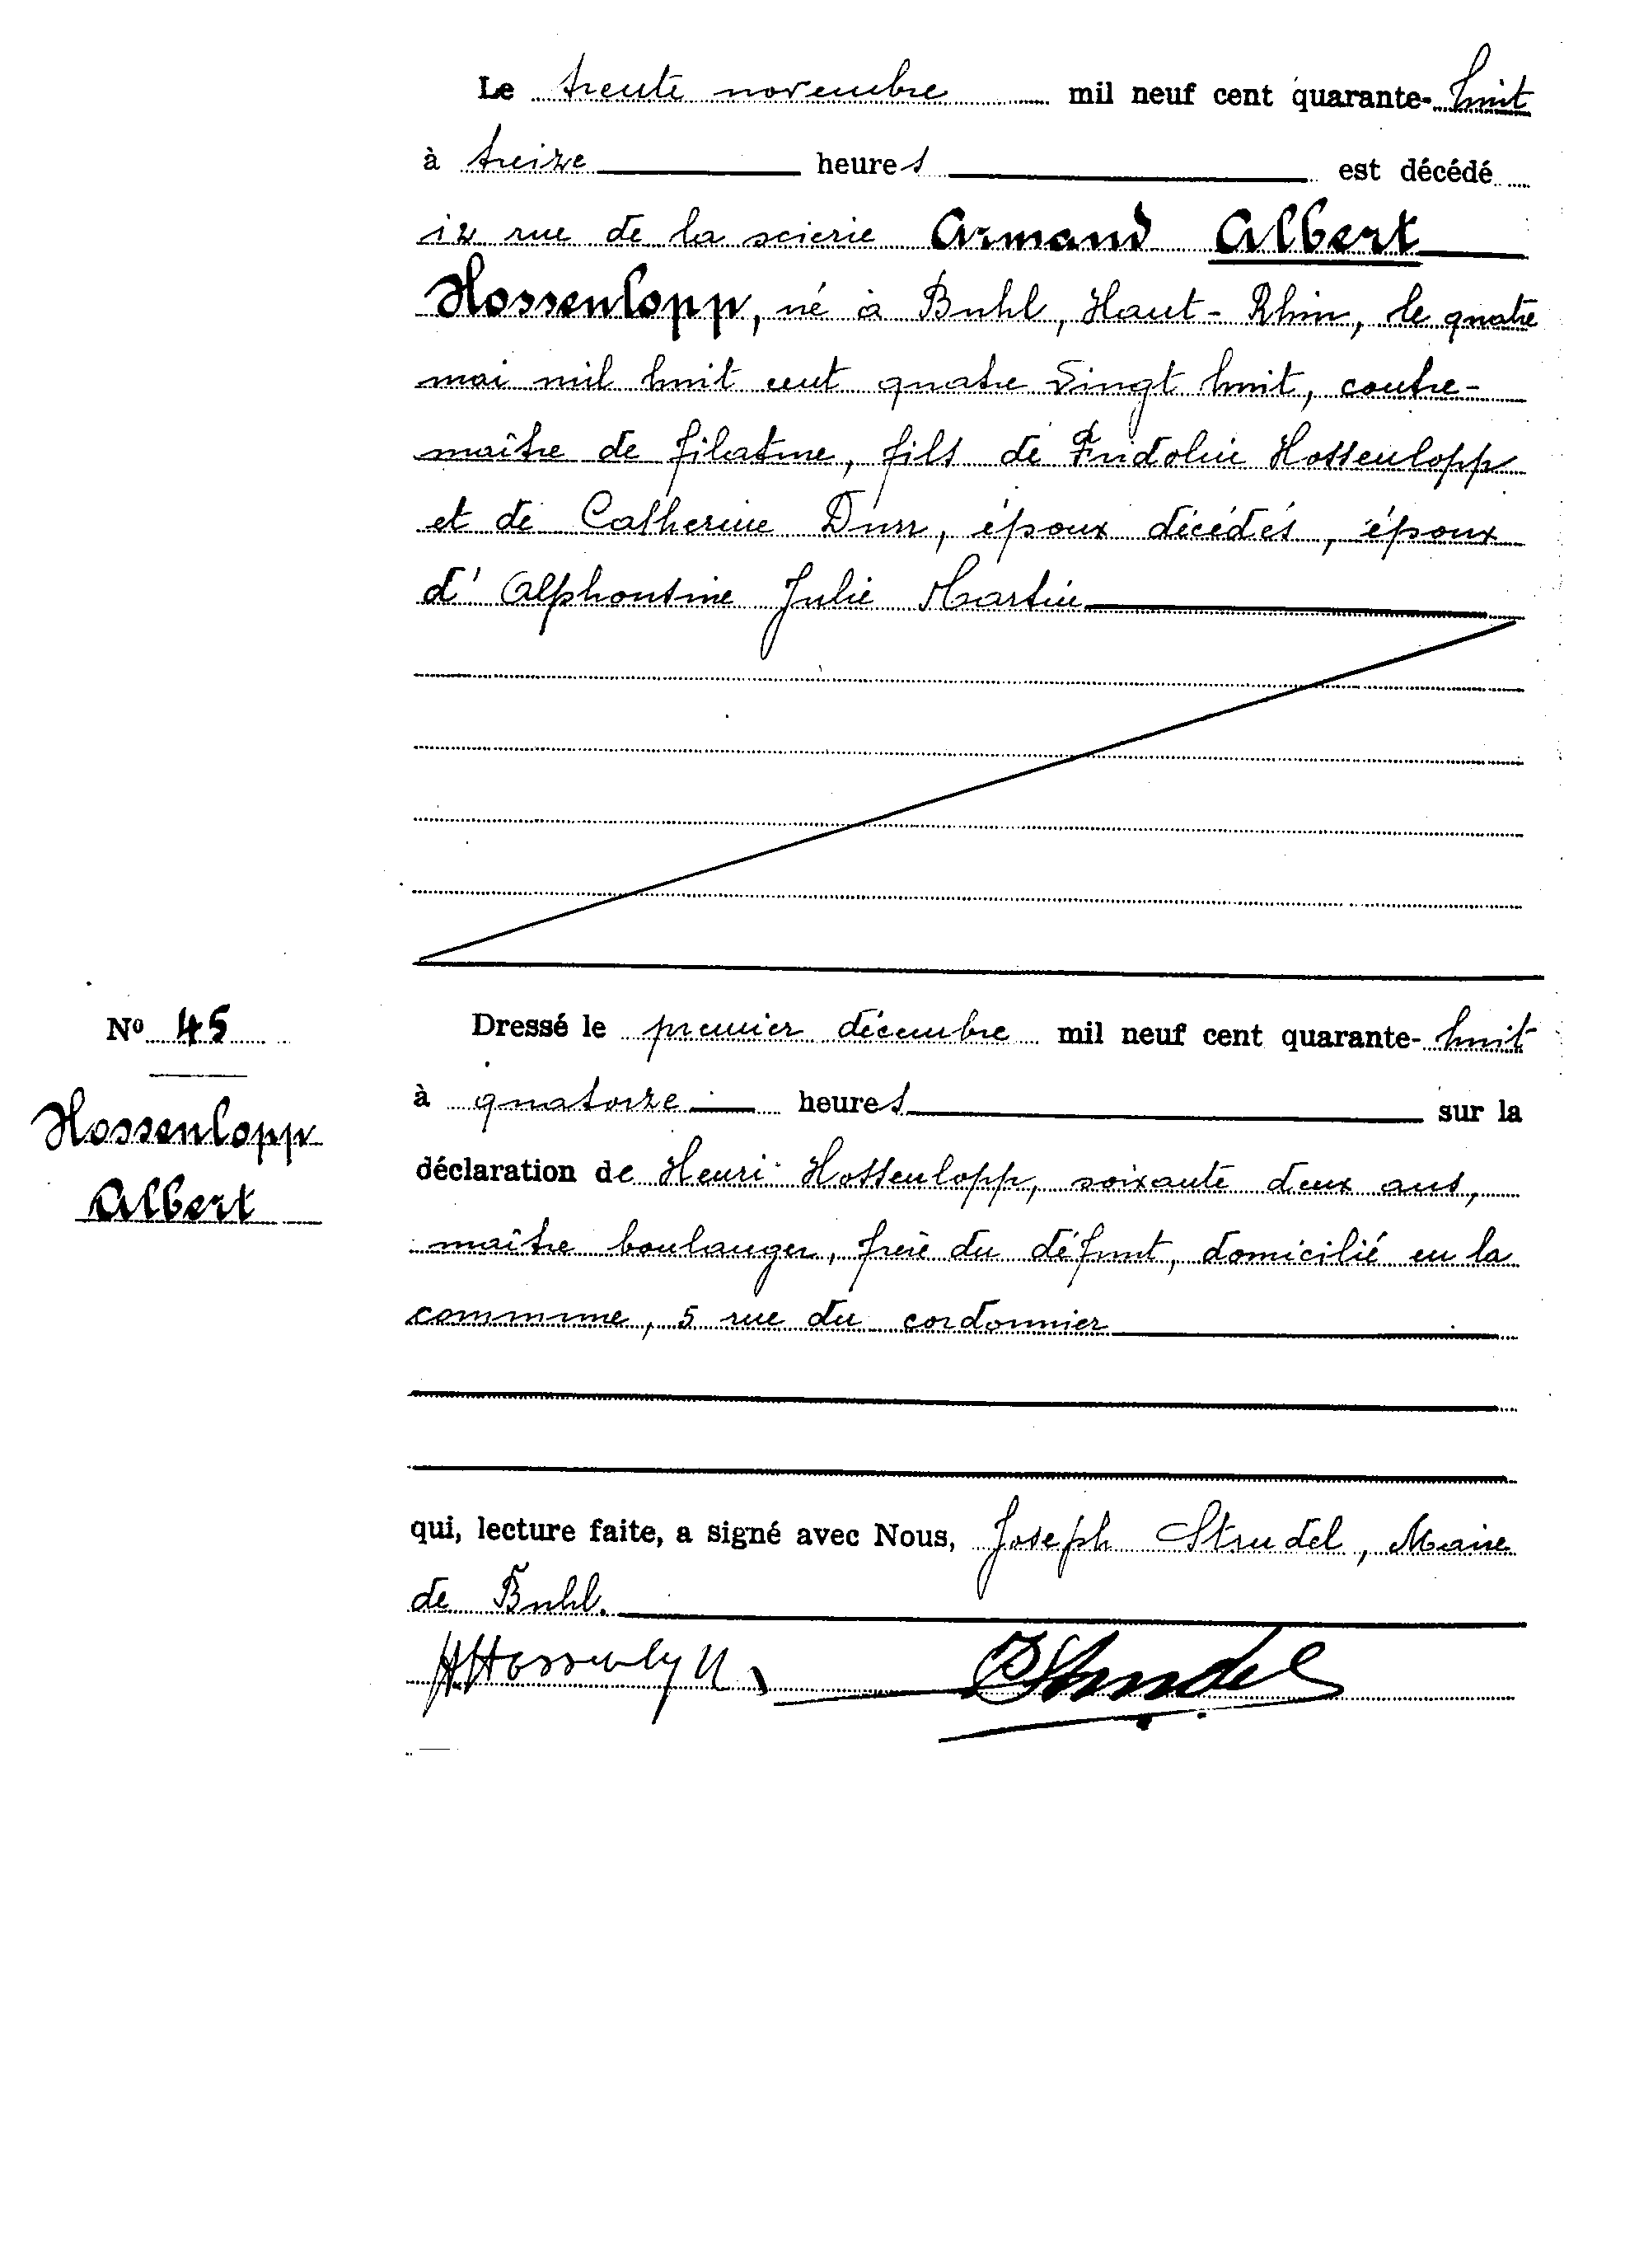 Le trente novembre mil neuf cent quarante-huit
à treize heures est décédé
12 rue de la scierie Armand Albert
Hossenlopp, né à Buhl, Haut-Rhin, le quatre
mai mil huit cent quatre vingt huit, contre-
maître de filature, fils de Fridolin Hossenlopp
et de Catherine Durr, époux décédés, époux
d'Alphonsine Julie Martin
Nº 45
Hossenlopp
Albert
Dressé le premier décembre mil neuf cent quarante-huit
à quatorze heures sur la
déclaration de Henri Hossenlopp, soixante deux ans,
maître boulanger, frère du défunt, domicilié en la
commune, 5 rue du cordonnier
qui, lecture faite, a signé avec Nous, Joseph Strudel, Maire
de Buhl.